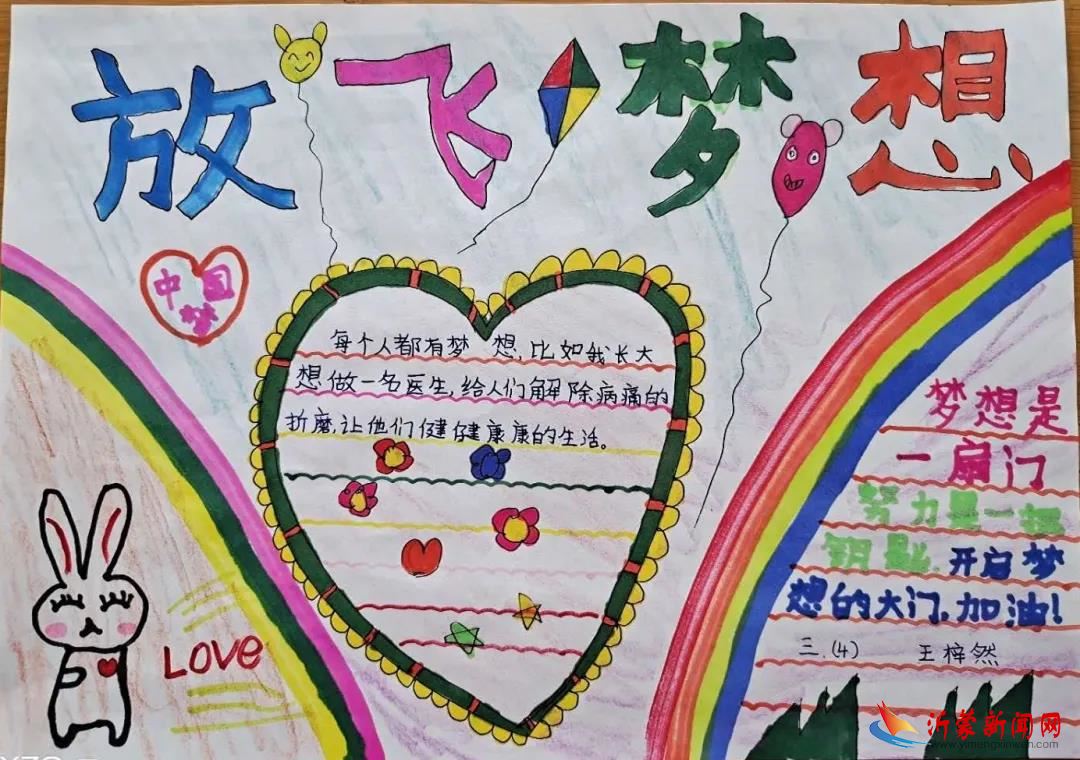 放飞梦想
中国
梦
每个人都有梦 想,比如我长大
想做一名医生,给人们解除病痛的
折磨,让他们健健康康的生活。
LOVe
梦想是
一扇门
努力是一把
钥匙.开启梦
想的大门,加油!
三.(4) 王梓然
沂蒙新闻网
www.yimengxinwen.com